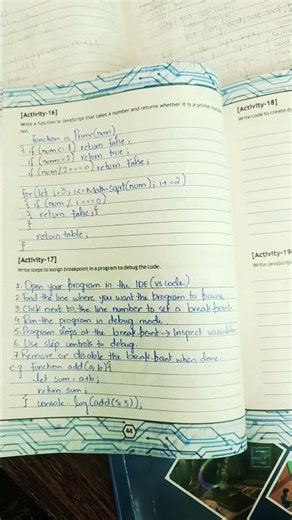 [Activity-16]
Write a function in JavaScript that takes a number and returns whether it is a prime number
not.
function is Prime(num)
{ if (num<=1) return false;
if (num==2) return true;
if (num/2===0) return false;
for(let i=3; i<=Math.sqrt(num); i+=2)
{ if (num/i===0)
} return false;}
}
return table;
}
[Activity-17]
Write steps to assign breakpoint in a program to debug the code.
1. Open your program in the IDE (vs code)
2. Find the line where you want the program to pause
3. Click next to the line number to set a break-point
4. Run the program in debug mode
5. Program stops at the break-point → Inspect variables
6. Use step controls to debug.
7. Remove or disable the break-point when done.
e.g function add(a,b){
let sum=a+b;
return sum;
} console.log(add(5,3));
44
[Activity-18]
Write code to create
[Activity-19
Write JavaScript